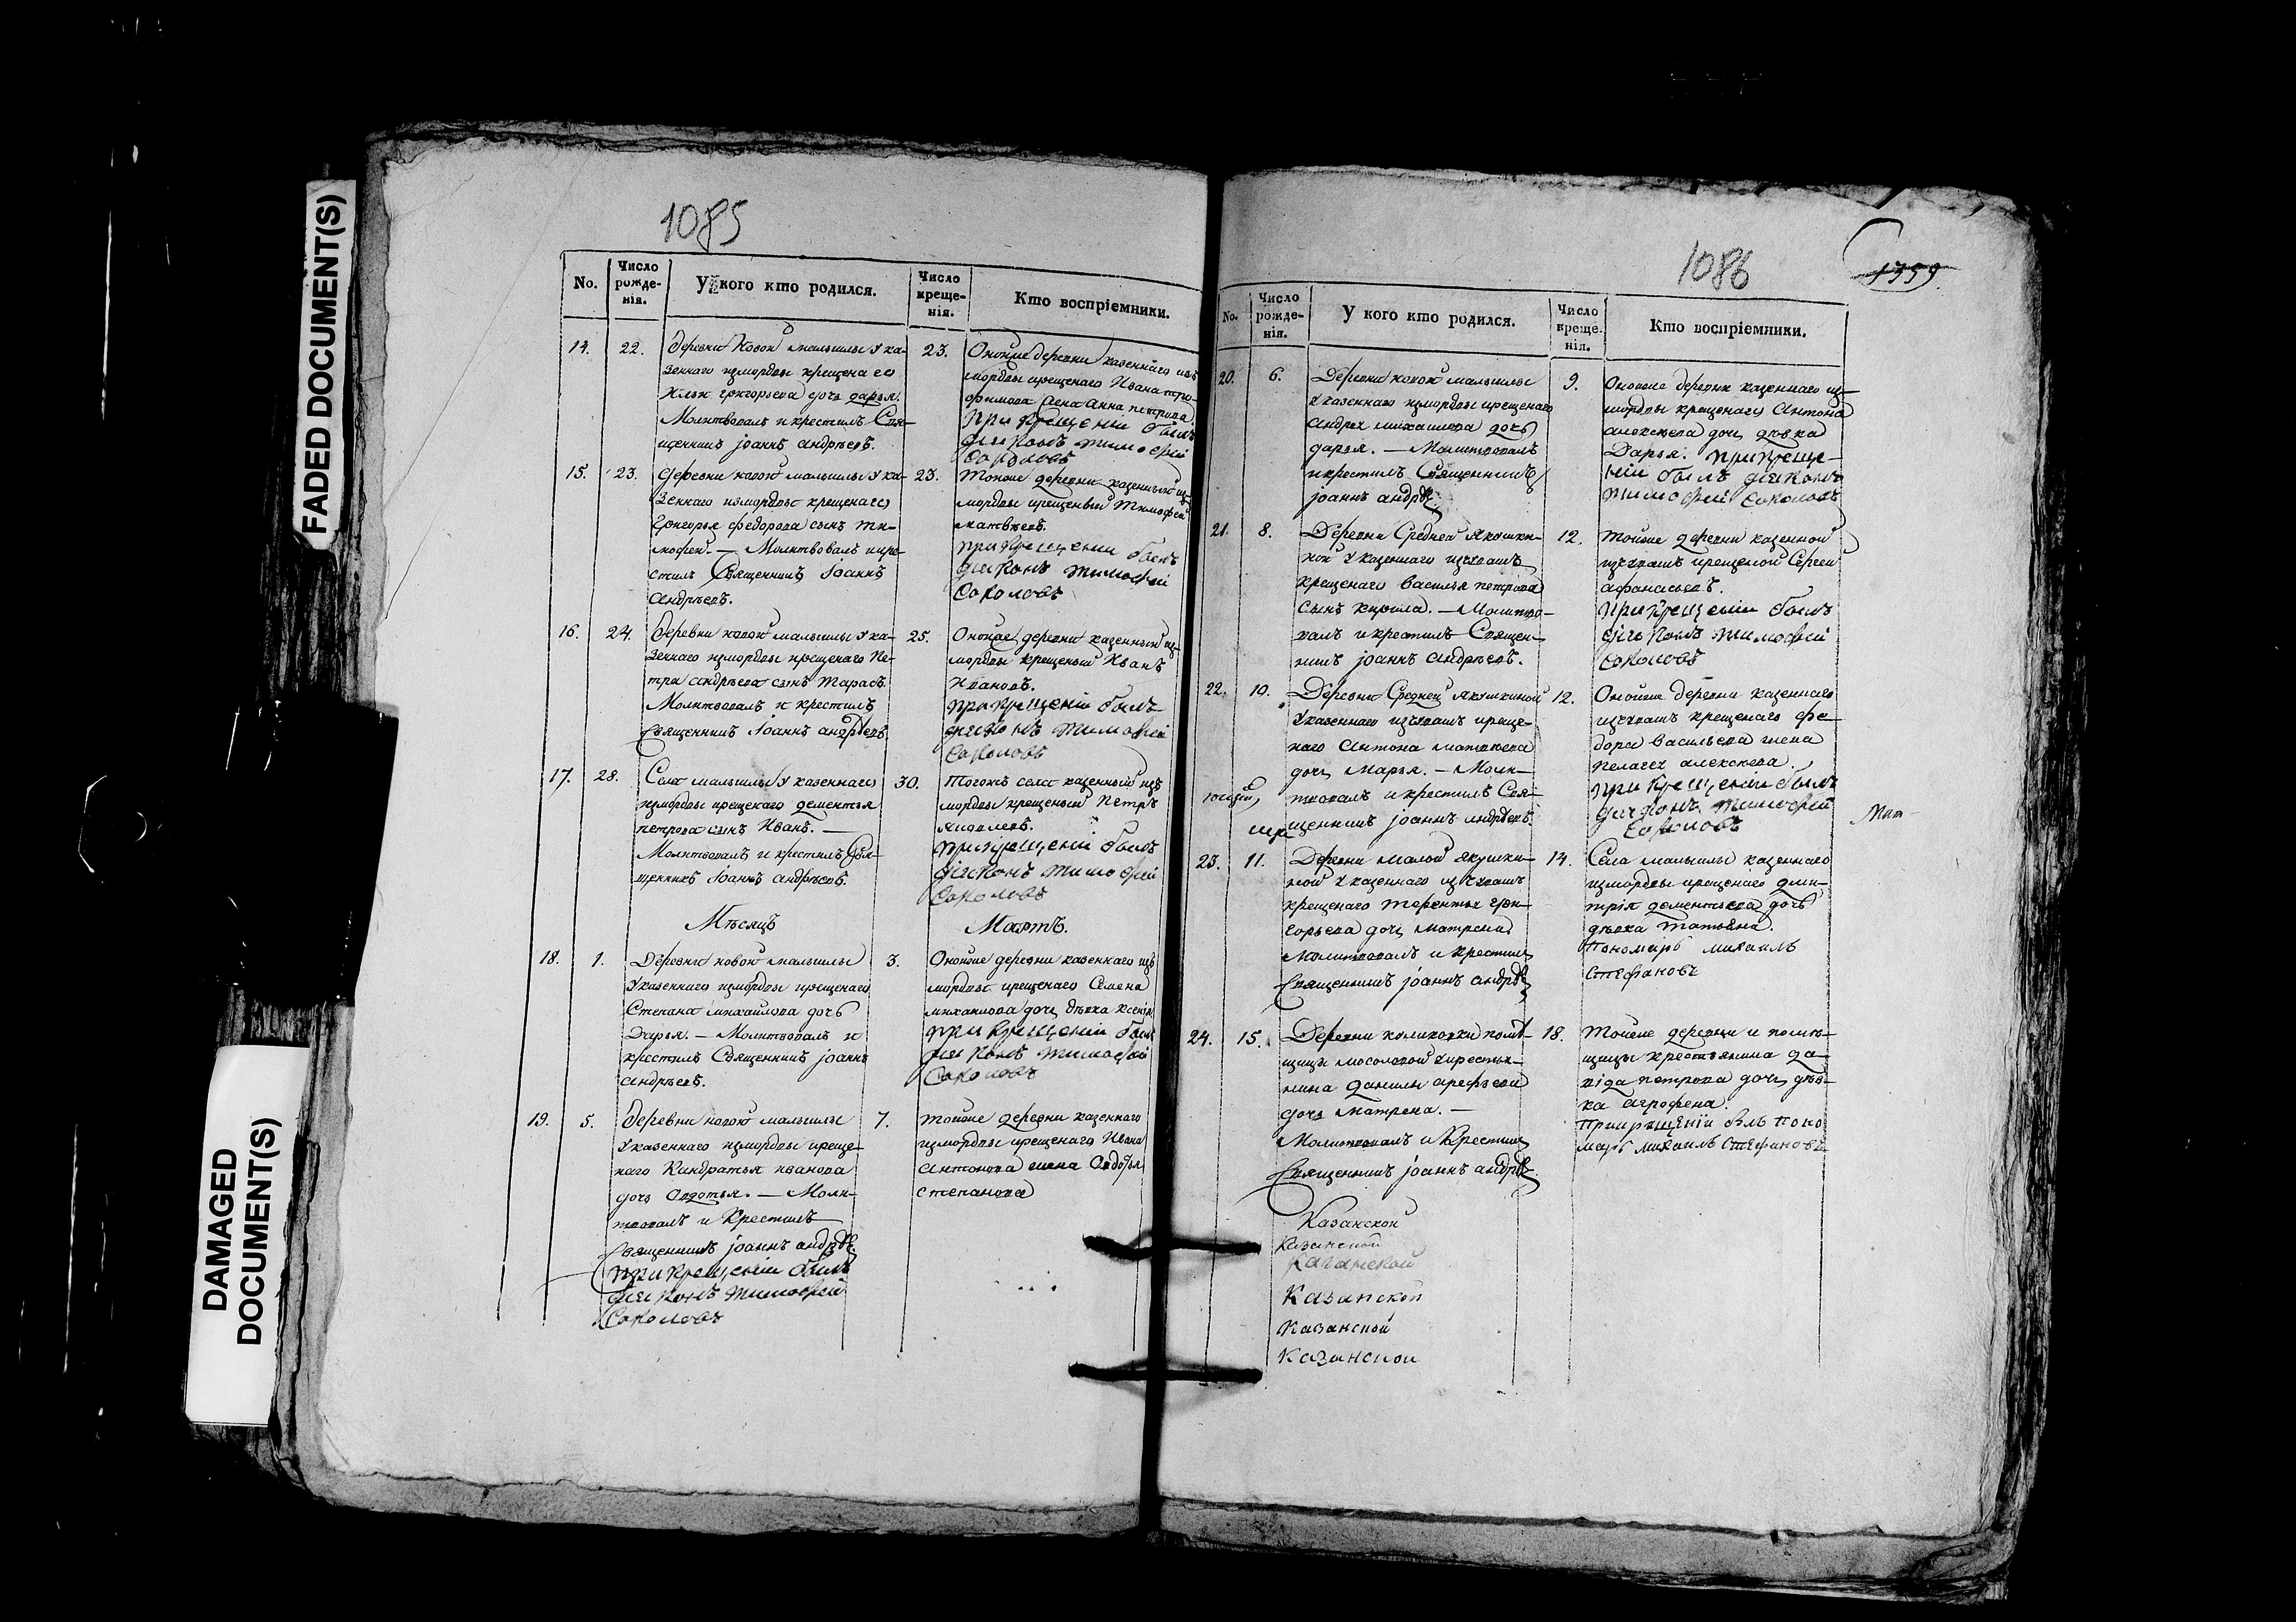 FADED DOCUMENT(S)
DAMAGED
DOCUMENT(S)
1085
No.
Число
рожде-
нія.
У кого кто родился.
Число
креще-
нія.
Кто воспріемники.
14. 22.
Деревни Новой малыклы у ка-
зеннаго измордвы крещена го
Ильи григорьева дочь дарья.
Молитвовалъ и крестилъ Свя-
щенникъ Іоаннъ андрѣевъ.
23.
Оной же деревни казеннаго изъ
мордвы крещенаго Ивана тро-
фимова жена Анна петрова
при крещеніи былъ
діяконъ тимофей
Соколовъ
15. 23.
Деревни новой малыклы у ка-
зеннаго измордвы крещенаго
Григорья федорова сынъ ти-
мофей. — Молитвовалъ и кре-
стилъ Священникъ Іоаннъ
андрѣевъ.
23.
Тойже деревни казенный из-
мордвы крещеный Тимофей
матвѣевъ.
при крещении былъ
діяконъ тимофей
Соколовъ
16. 24.
Деревни новой малыклы у ка-
зеннаго измордвы крещенаго Пе-
тра андрѣева сынъ тарасъ.
Молитвовалъ и крестилъ
Священникъ Іоаннъ андрѣевъ
25.
Оной же деревни казенный из-
мордвы крещеный Иванъ
Ивановъ.
при крещеніи былъ
діяконъ тимофей
Соколовъ
17. 28.
Села малыклы у казеннаго
измордвы крещенаго дементья
петрова сынъ Иванъ. —
Молитвовалъ и крестилъ Свя-
щенникъ Іоаннъ андрѣевъ.
30.
Тогожъ села казенный изъ
мордвы крещеный Петръ
яковлевъ.
при крещеніи былъ
діяконъ тимофей
Соколовъ
Мѣсяцъ Мартъ.
18. 1.
Деревни новой малыклы
у казеннаго измордвы крещенаго
Степана михайлова дочь
Дарья. — Молитвовалъ и
крестилъ Священникъ Іоаннъ
андрѣевъ.
3.
Оной же деревни казеннаго изъ
мордвы крещенаго Семена
михайлова дочь дѣвка Ксенія
при крещеніи былъ
діяконъ тимофей
Соколовъ
19. 5.
Деревни новой малыклы
у казеннаго измордвы креще-
наго Кандратья иванова
дочь Овдотья. — Моли-
твовалъ и Крестилъ
Священникъ Іоаннъ андрѣ
при крещеніи былъ
діяконъ тимофей
Соколовъ
7.
тойже деревни казеннаго
измордвы крещенаго Ивана
антонова жена Овдотья
степанова
1086
1359.
No.
Число
рожде-
нія.
У кого кто родился.
Число
креще-
нія.
Кто воспріемники.
20. 6.
Деревни новой малыклы
у казеннаго измордвы крещенаго
андрея михайлова дочь
дарья. — Молитвовалъ
и крестилъ Священникъ
Іоаннъ андрѣ
9.
Оной же деревни казеннаго из-
мордвы крещенаго Антона
алексѣева дочь дѣвка
Дарья. при креще-
ніи былъ діяконъ
тимофей Соколовъ
21. 8.
Деревни Средней якушки-
ной у казеннаго изчувашъ
крещенаго василья петрова
сынъ кирила. — Молитво-
валъ и крестилъ Священ-
никъ Іоаннъ андрѣевъ.
12.
тойже деревни казенной
изчувашъ крещеной Сергей
афанасьевъ.
при крещеніи былъ
діяконъ тимофей
Соколовъ
22. 10.
Деревни Средней якушкиной
у казеннаго изчувашъ креще-
наго антона матвѣева
дочь Марья. — Моли-
твовалъ и крестилъ Свя-
щенникъ Іоаннъ андрѣевъ.
12.
Оной же деревни казеннаго
изчувашъ крещенаго фе-
дора васильева жена
пелагея алексѣева.
при крещеніи былъ
діяконъ тимофей
Соколовъ
23. 11.
Деревни малой якушки-
ной у казеннаго изчувашъ
крещенаго терентья гри-
горьева дочь матрена
Молитвовалъ и Крестилъ
Священникъ Іоаннъ андрѣ
14.
Села малыклы казеннаго
измордвы крещенаго дми-
трія дементьева дочь
дѣвка татьяна.
пономарь михаилъ
Стефановъ
24. 15.
помѣ-
щицы мосоловой у крестья-
нина данилы арефьева
дочь матрена. —
Молитвовалъ и Крестилъ
Священникъ Іоаннъ андрѣ
18.
Тойже деревни и помѣ-
щицы крестьянина да-
вида петрова дочь дѣв-
ка агрофена.
при крещеніи былъ поно
марь михаилъ Стефановъ
Казанской
Казанской
Казанской
Казанской
Казанской
Казанской